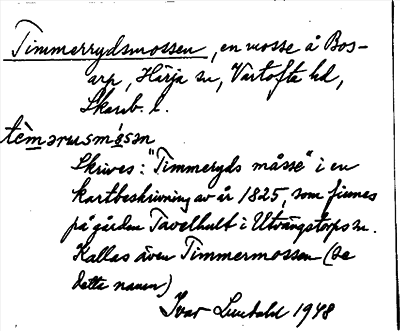 Timmerrydsmossen, en mosse å Bos-
arp, Härja sn, Vartofta hd,
Skarab. l.
tèmərusmósən
Skrives: "Timmeryds måsse" i en
kartbeskrivning av år 1825, som finnes
på gården Tavelhult i Utvängstorps sn.
Kallas även Timmermossen (se
detta namn)
Ivar Lundahl 1948